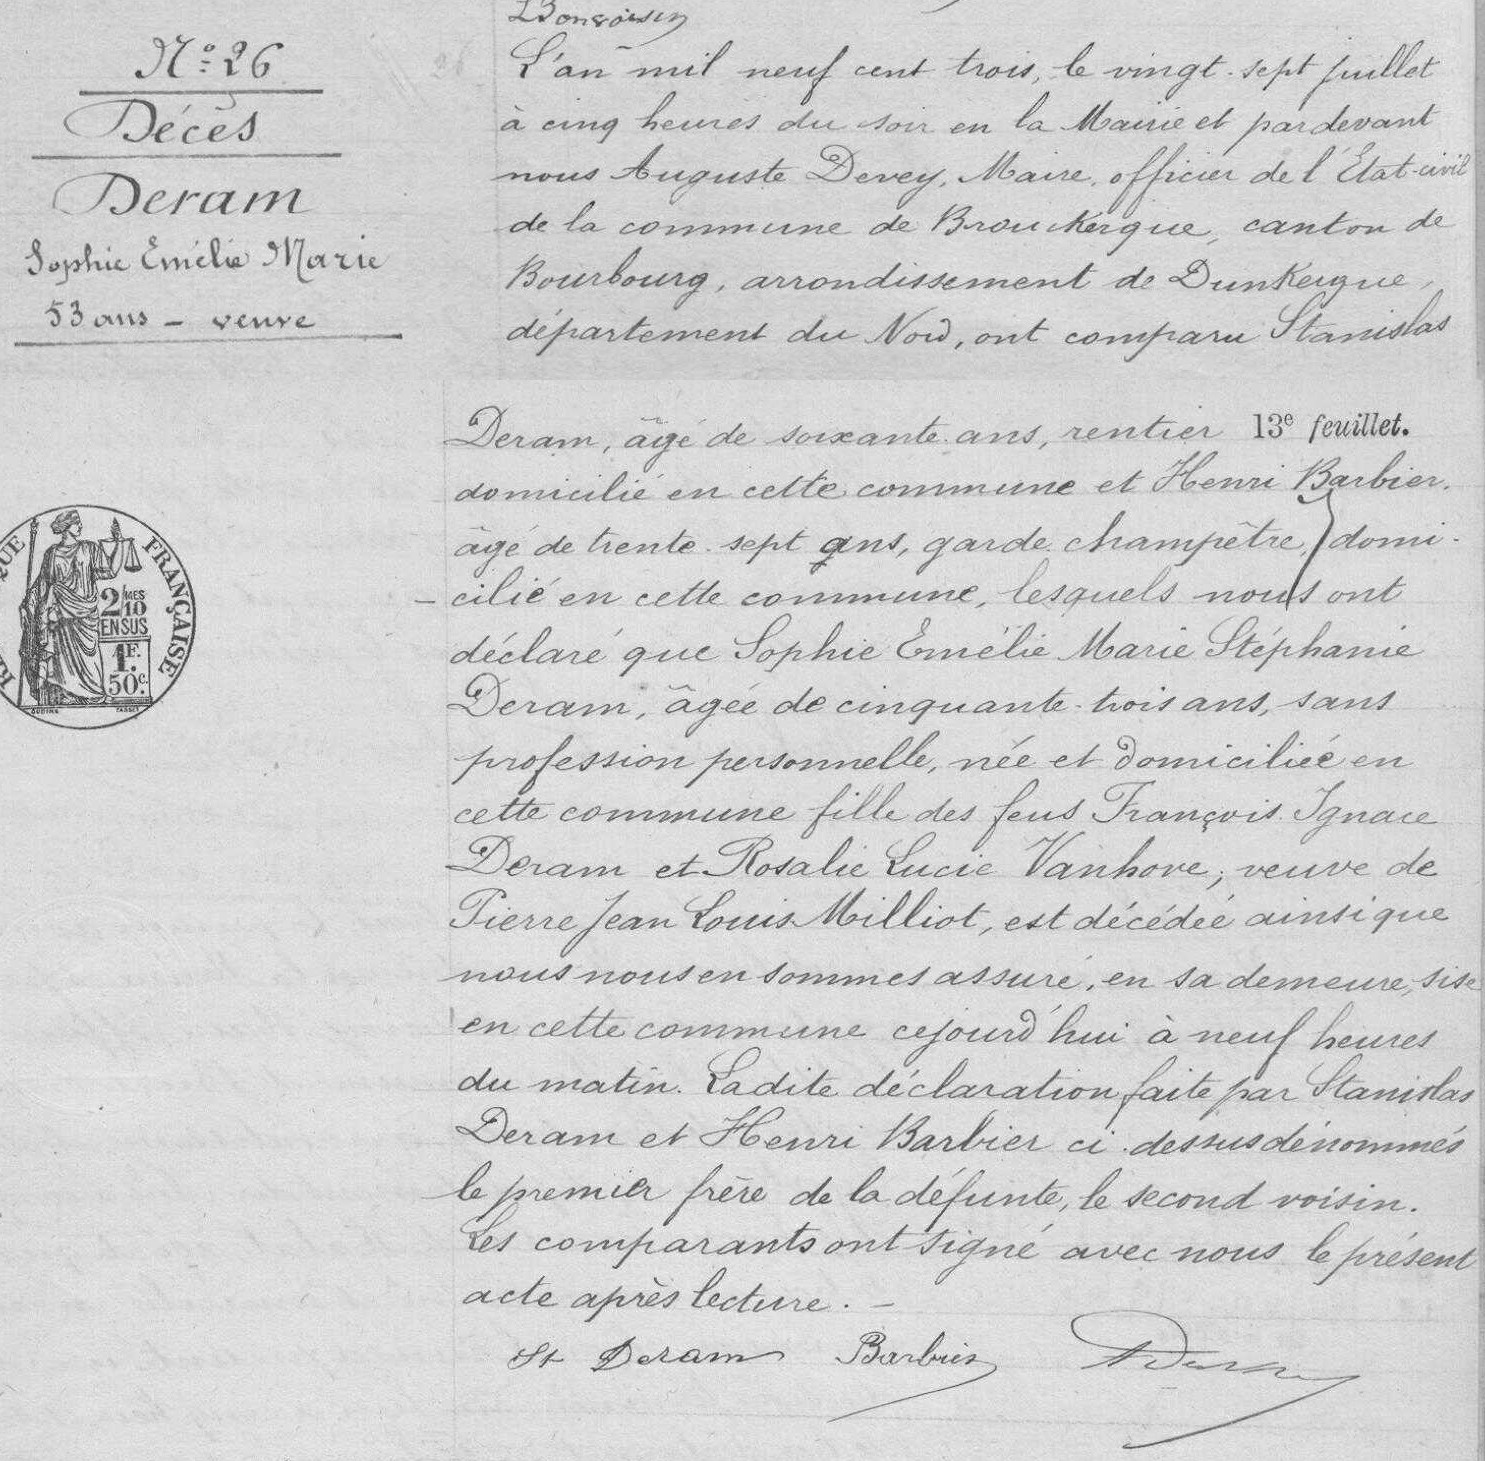 Bonvoisin
N° 26
Décès
Deram
Sophie Emélie Marie
53 ans - veuve
L'an mil neuf cent trois, le vingt-sept juillet
à cinq heures du soir en la Mairie et pardevant
nous Auguste Devey, Maire, officier de l'État-civil
de la commune de Brouckerque, canton de
Bourbourg, arrondissement de Dunkerque,
département du Nord, ont comparu Stanislas
Deram, âgé de soixante ans, rentier 13e feuillet.
domicilié en cette commune et Henri Barbier.
âgé de trente-sept ans, garde-champêtre, domi-
cilié en cette commune, lesquels nous ont
déclaré que Sophie Emélie Marie Stéphanie
Deram, âgée de cinquante-trois ans, sans
profession personnelle, née et domiciliée en
cette commune fille des feus François Ignace
Deram et Rosalie Lucie Vanhove, veuve de
Pierre Jean Louis Milliot, est décédée ainsi que
nous nous en sommes assuré, en sa demeure, sise
en cette commune cejourd'hui à neuf heures
du matin. Ladite déclaration faite par Stanislas
Deram et Henri Barbier ci-dessus dénommés
le premier frère de la défunte, le second voisin.
Les comparants ont signé avec nous le présent
acte après lecture. -
St Deram Barbier
QUE FRANÇAISE
2 MES
10
EN SUS
1F.
50c.